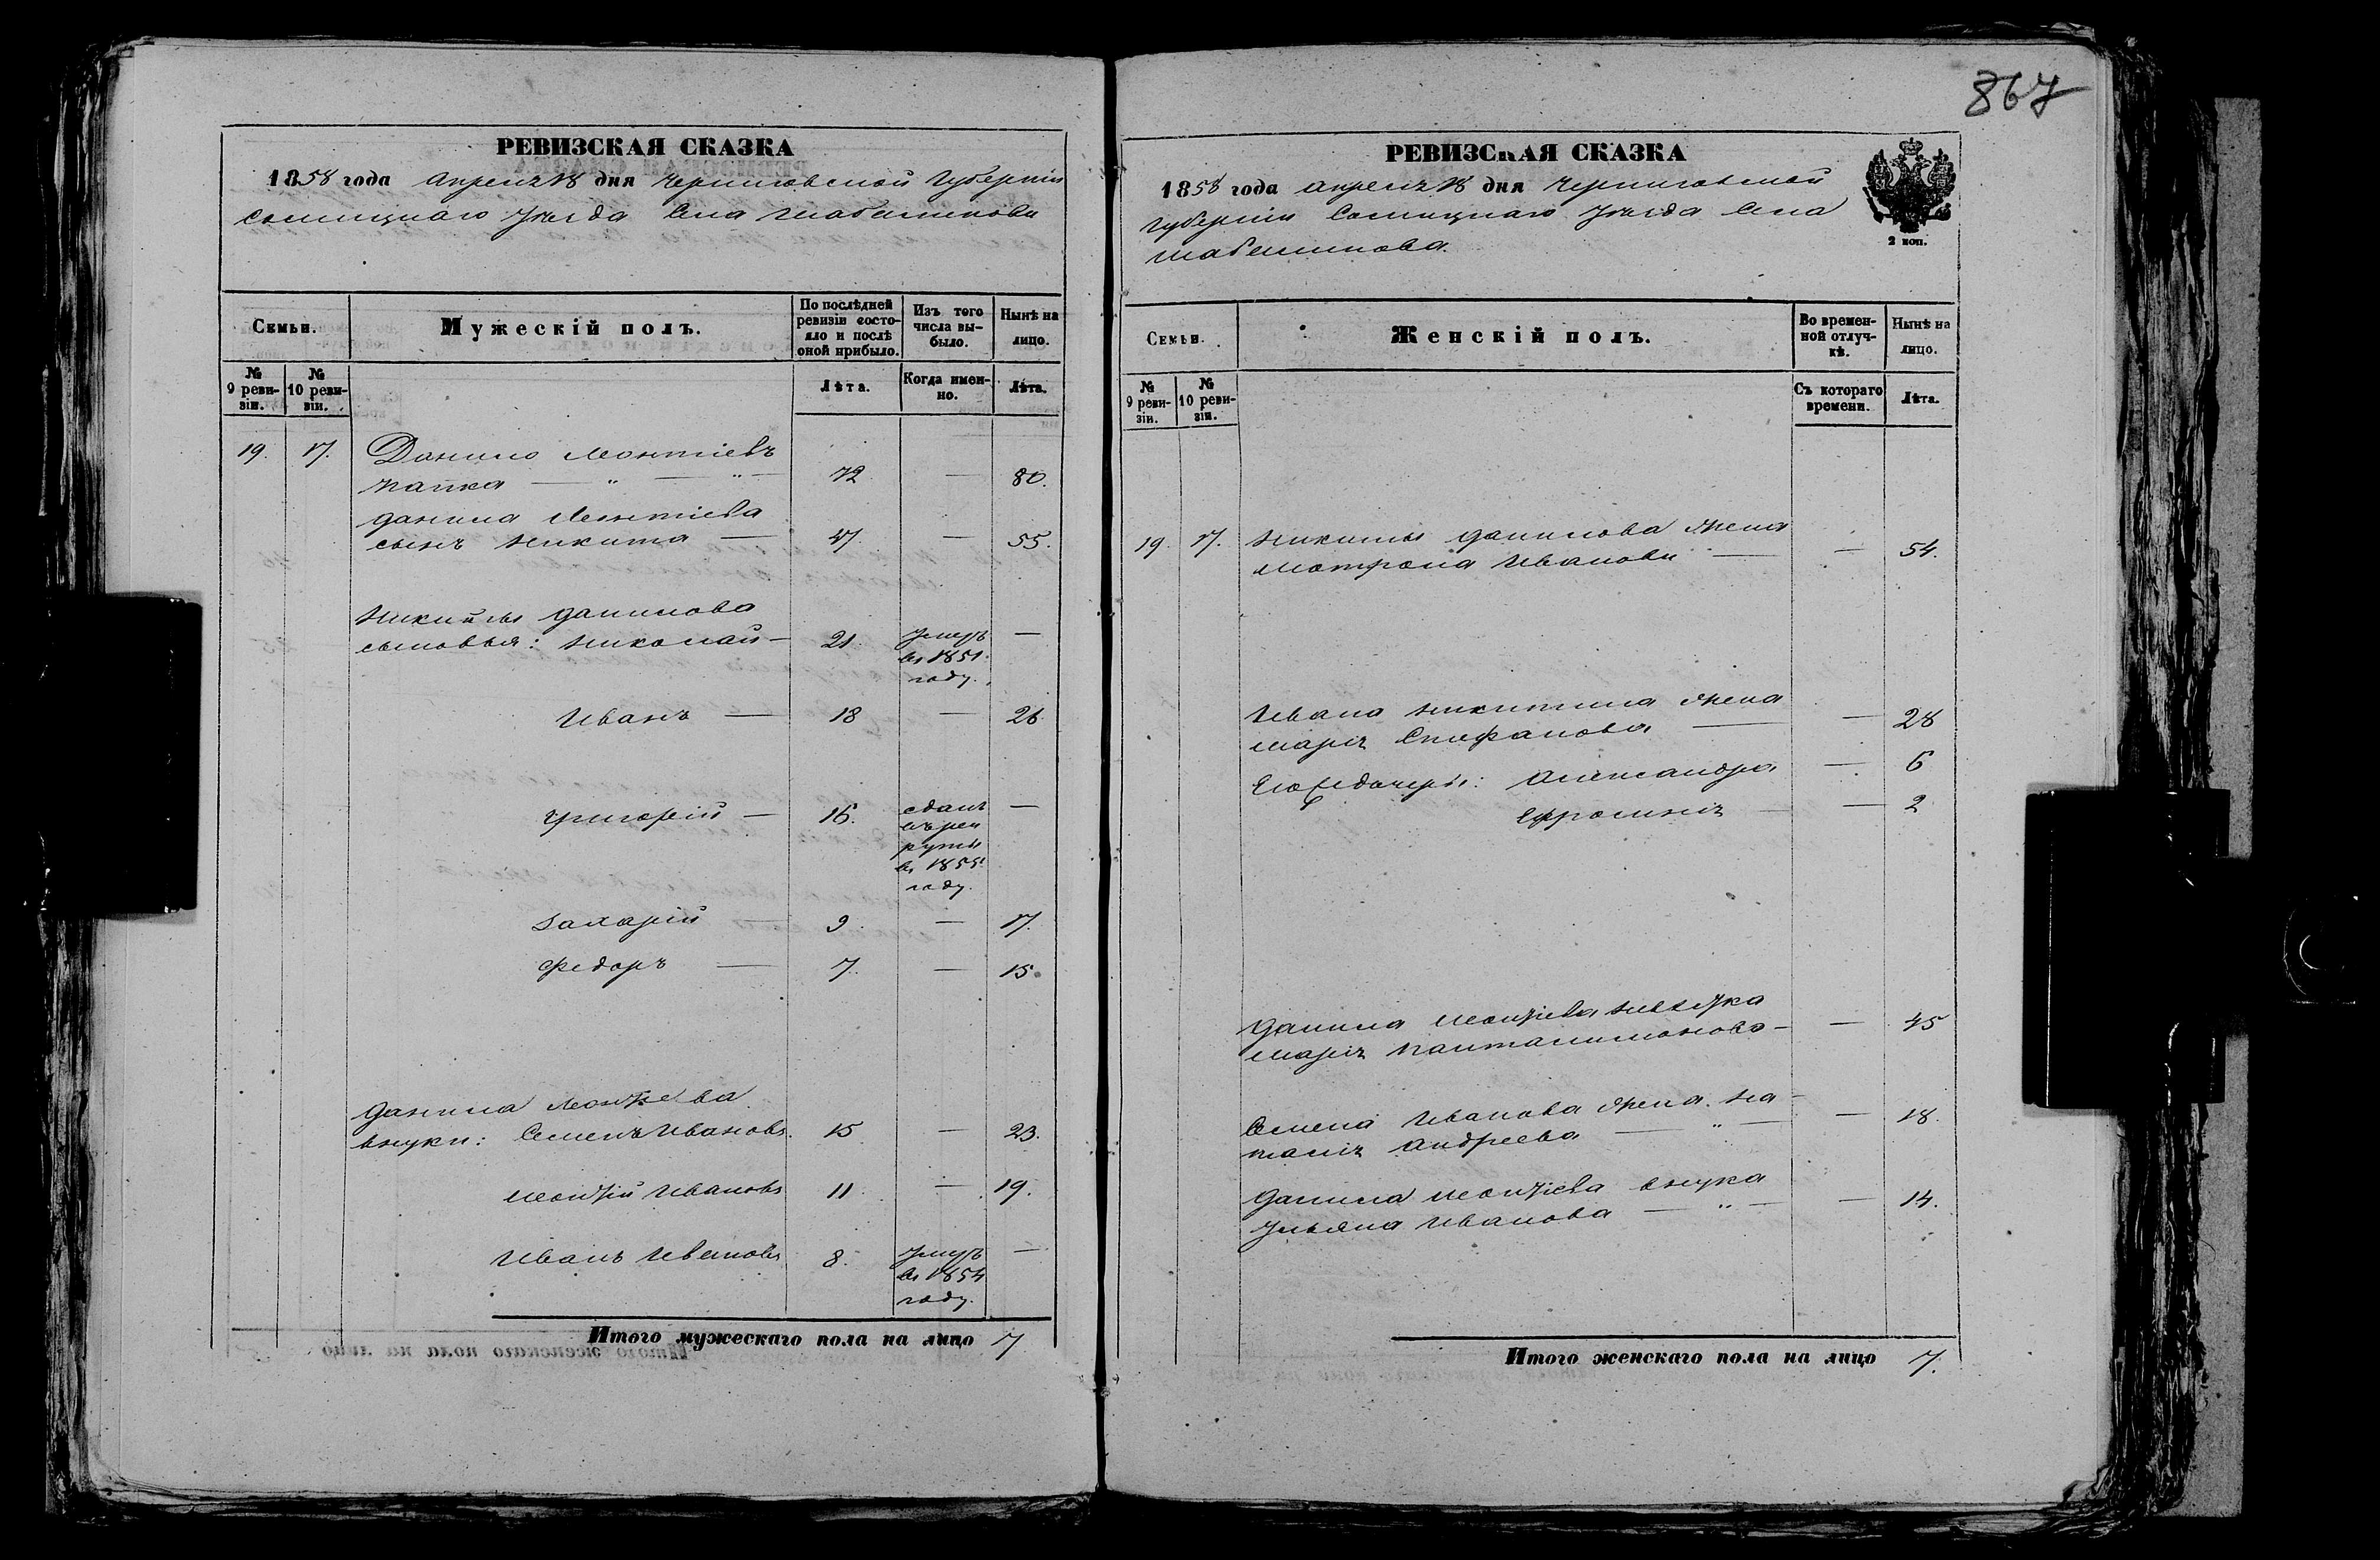 867
РЕВИЗСКАЯ СКАЗКА
1858 года Апреля 18 дня Черниговской Губерніи
Сосницкаго Уѣзда Села Шабалинова
Семьи.
Мужескій полъ.
По послѣдней ревизіи состояло и послѣ оной прибыло.
Изъ того числа выбыло.
Нынѣ на лицо.
№ 9 ревизіи.
№ 10 ревизіи.
Лѣта.
Когда именно.
Лѣта.
19. 17. Данило Леонтіевъ
Папка — „ — „ — 72 — 80.
Данила Леонтіева
сынъ Никита — 47. — 55.
Никиты Данилова
сыновья: Николай — 21. Умеръ —
въ 1851.
году.
Иванъ — 18 — 26.
Григорій — 16. сданъ —
въ рек
руты
въ 1855.
году.
Захарій — 9. — 17.
Федоръ — 7. — 15.
Данила Леонтіева
внуки: Семенъ Ивановъ. 15 — 23.
Леонтій Ивановъ 11. — 19.
Иванъ Ивановъ 8. Умеръ —
въ 1854
году.
Итого мужескаго пола на лицо 7
РЕВИЗСКАЯ СКАЗКА
1858 года Апреля 18 дня Черниговской
Губерніи Сосницкаго Уѣзда Села
Шабалинова.
2 коп.
Семьи.
Женскій полъ.
Во временной отлучкѣ.
Нынѣ на лицо.
№ 9 ревизіи.
№ 10 ревизіи.
Съ котораго времени.
Лѣта.
19. 17. Никиты Данилова жена
Матрона Иванова — — 54.
Ивана Никитина жена
Марія Епифанова — — 28
Его дочери: Александра — 6
Ефросинія — — 2
Данила Леонтіева невѣстка
Марія Панталимонова — — 45
Семена Иванова жена На-
талія Андреева — „ — — 18.
Данила Леонтіева внука
Ульяна Иванова — „ — — 14.
Итого женскаго пола на лицо 7.